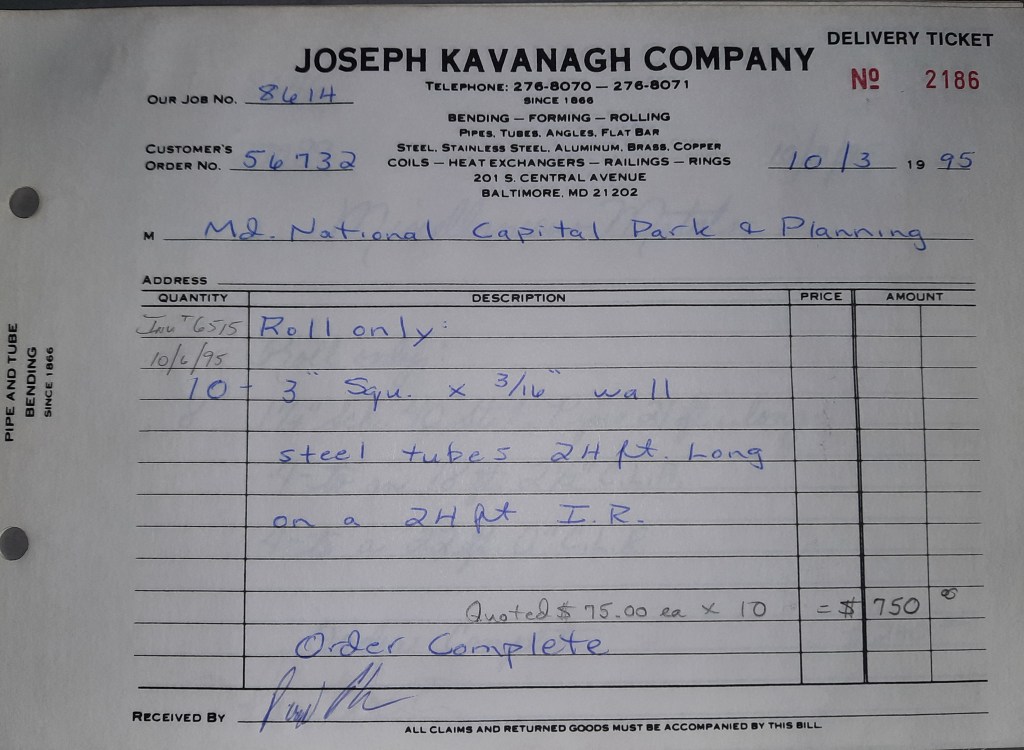 DELIVERY TICKET
JOSEPH KAVANAGH COMPANY
Nº 2186
TELEPHONE: 276-8070 — 276-8071
SINCE 1866
OUR JOB NO. 8614
BENDING — FORMING — ROLLING
PIPES, TUBES, ANGLES, FLAT BAR
STEEL, STAINLESS STEEL, ALUMINUM, BRASS, COPPER
COILS — HEAT EXCHANGERS — RAILINGS — RINGS
201 S. CENTRAL AVENUE
BALTIMORE, MD 21202
CUSTOMER'S
ORDER NO. 56732
10/3 19 95
M Md. National Capital Park & Planning
ADDRESS
QUANTITY DESCRIPTION PRICE AMOUNT
6515 Roll only:
10/6/95
10 - 3" Squ. x 3/16" wall
steel tubes 24 ft. Long
on a 24 ft I.R.
Quoted $75.00 ea x 10 = $ 750 00
Order Complete
RECEIVED BY
ALL CLAIMS AND RETURNED GOODS MUST BE ACCOMPANIED BY THIS BILL
PIPE AND TUBE
BENDING
SINCE 1866